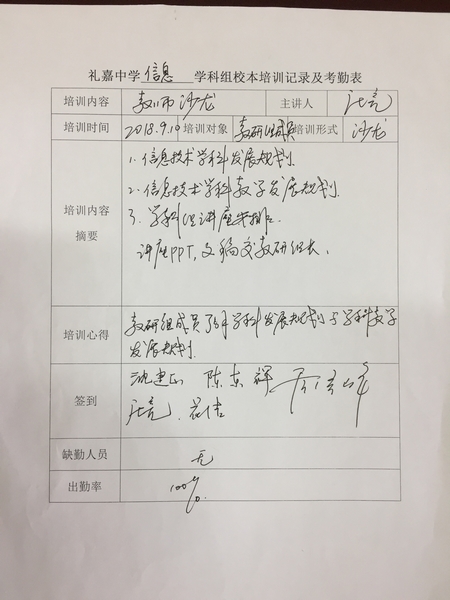 礼嘉中学信息学科组校本培训记录及考勤表
培训内容 教师沙龙 主讲人
培训时间 2018.9.10 培训对象 教研组成员 培训形式 沙龙
培训内容摘要
1. 信息技术学科发展规划
2. 信息技术学科教学发展规划
3. 学科组讲座安排.
讲座PPT,文稿交教研组长.
培训心得
教研组成员了解学科发展规划与学科教学
发展规划.
签到
沈建正 陈东辉
缺勤人员 无
出勤率 100%.